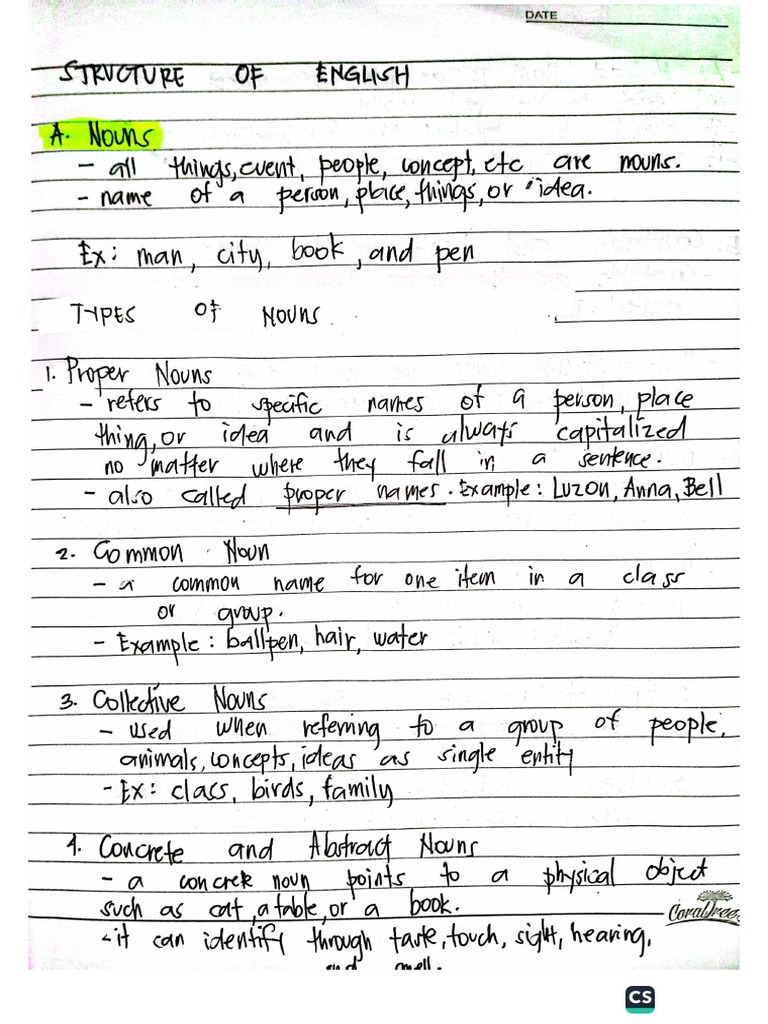 DATE
STRUCTURE OF ENGLISH
A. NOUNS
- all things, event, people, concept, etc are nouns.
- name of a person, place, things, or idea.
Ex: man, city, book, and pen
TYPES OF NOUNS.
1. Proper Nouns
- refers to specific names of a person, place
thing, or idea and is always capitalized
no matter where they fall in a sentence.
- also called proper names. Example: Luzon, Anna, Bell
2. Common Noun
- a common name for one item in a class
or group.
- Example: ballpen, hair, water
3. Collective Nouns
- used when referring to a group of people,
animals, concepts, ideas as single entity
- Ex: class, birds, family
4. Concrete and Abstract Nouns
- a concrete noun points to a physical object
such as cat, a table, or a book.
CoralTree
- it can identify through taste, touch, sight, hearing,
and smell.
CS